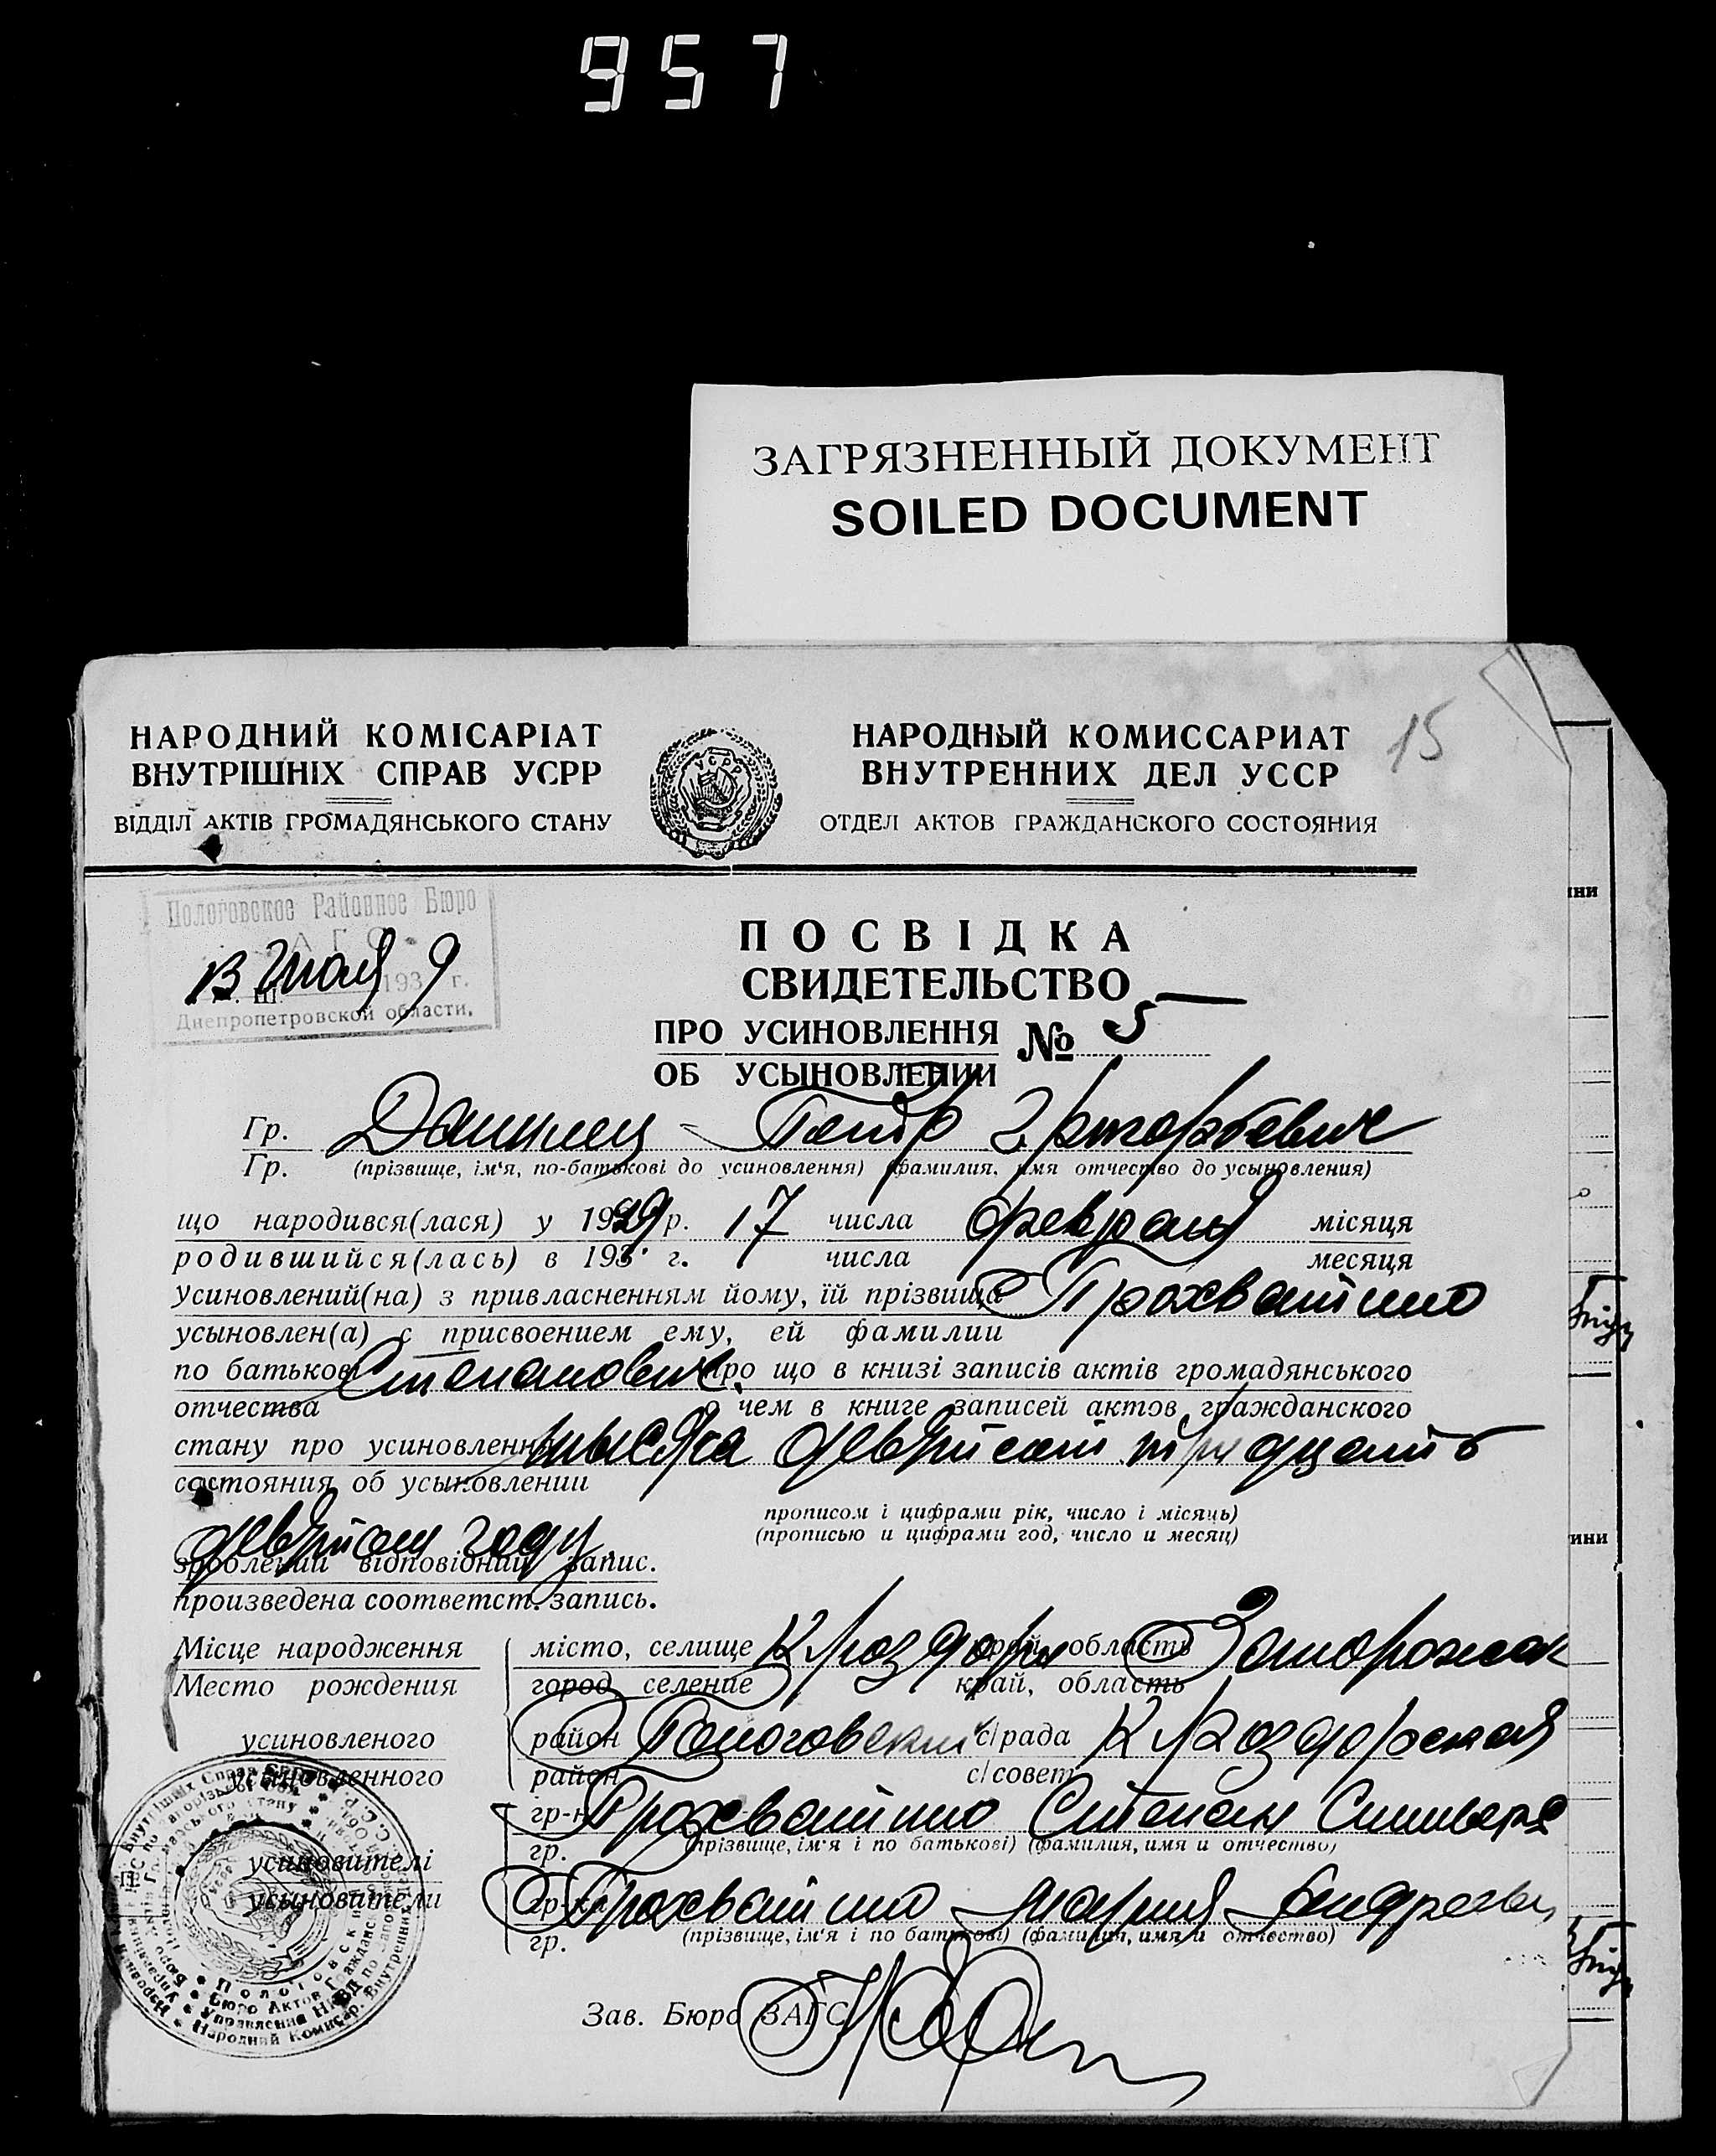 957
ЗАГРЯЗНЕННЫЙ ДОКУМЕНТ
SOILED DOCUMENT
15
НАРОДНИЙ КОМІСАРІАТ
ВНУТРІШНІХ СПРАВ УСРР
ВІДДІЛ АКТІВ ГРОМАДЯНСЬКОГО СТАНУ
УСРР
НАРОДНЫЙ КОМИССАРИАТ
ВНУТРЕННИХ ДЕЛ УССР
ОТДЕЛ АКТОВ ГРАЖДАНСКОГО СОСТОЯНИЯ
Пологовское Районное Бюро
13 мая 1939 г.
Днепропетровской области.
ПОСВІДКА
СВИДЕТЕЛЬСТВО
ПРО УСИНОВЛЕННЯ № 5
ОБ УСЫНОВЛЕНИИ
Гр.
Гр. (прізвище, ім'я, по-батькові до усиновлення) (фамилия, имя отчество до усыновления)
що народився(лася) у 1929 р. 17 числа февраля місяця
родившийся(лась) в 193 г. числа месяца
Усиновлений(на) з привласненням йому, їй прізвища Прохватило
усыновлен(а) с присвоением ему, ей фамилии
по батькові Степанович про що в книзі записів актів громадянського
отчества о чем в книге записей актов гражданского
стану про усиновлення тысяча девятсот тридцать
состояния об усыновлении
прописом і цифрами рік, число і місяць)
(прописью и цифрами год, число и месяц)
девятом году.
зроблений відповідний запис.
произведена соответст. запись.
Місце народження місто, селище край, область
Место рождения город селение край, область
усиновленого район Пологовский с/рада
усыновленного район с/совет
гр-н Прохватило Степан
гр. (прізвище, ім'я і по батькові) (фамилия, имя и отчество)
усиновителі
усыновители гр-ка Прохватило Мария
гр. (прізвище, ім'я і по батькові) (фамилия, имя и отчество)
Зав. Бюро ЗАГС